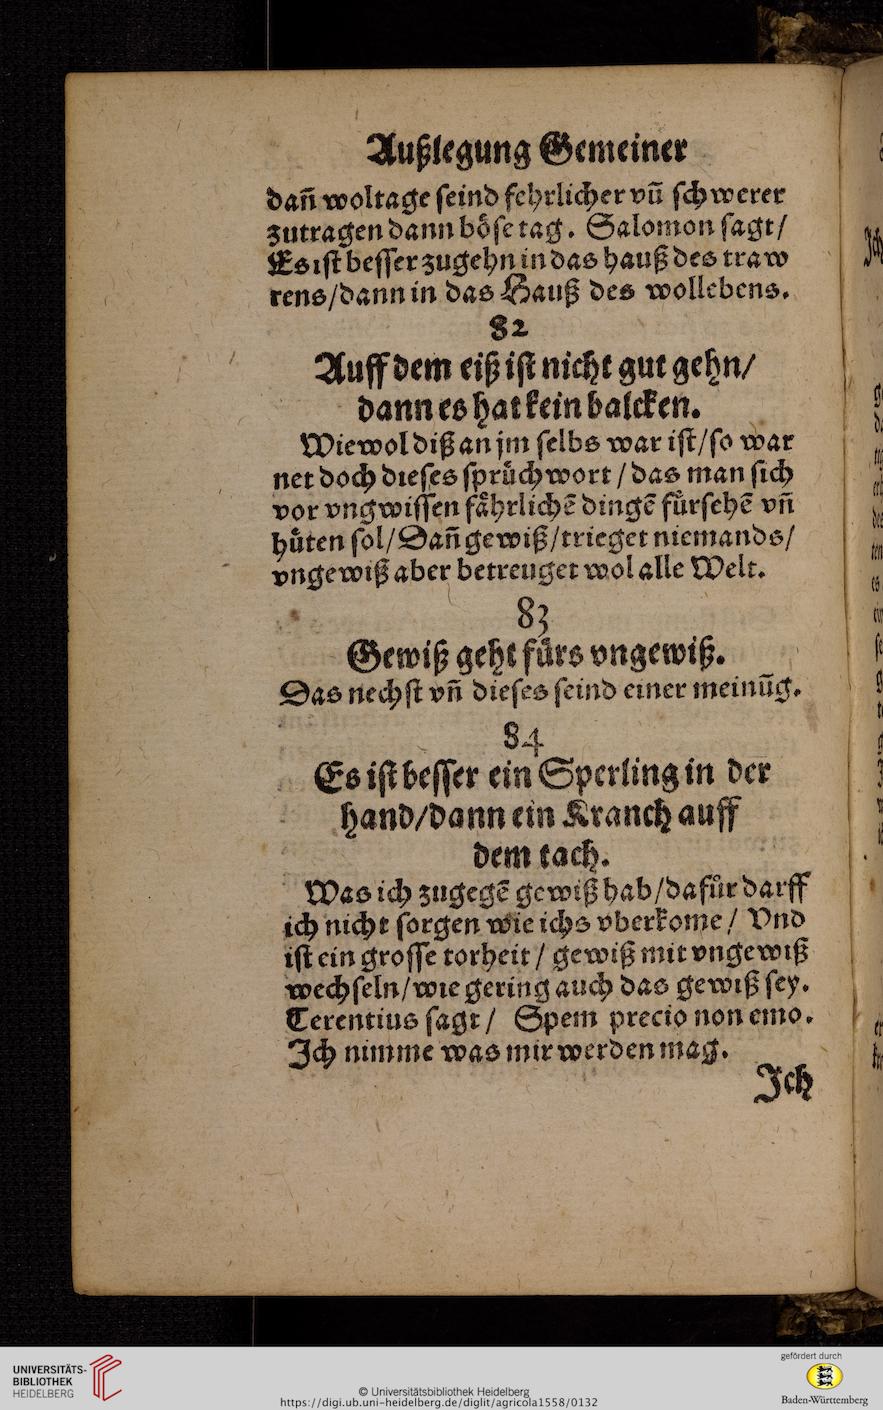 Außlegung Gemeiner
dañ woltage seind fehrlicher vñ schwerer
zutragen dann böse tag. Salomon sagt/
Es ist besser zugehn in das hauß des traw
rens/dann in das Hauß des wollebens.
82
Auff dem eiß ist nicht gut gehn/
dann es hat kein balcken.
Wiewol diß an jm selbs war ist/so war
net doch dieses sprüchwort/das man sich
vor vngwissen fährlichē dingē fürsehē vñ
hüten sol/Dañ gewiß/trieget niemands/
vngewiß aber betreuget wol alle Welt.
83
Gewiß geht fürs vngewiß.
Das nechst vñ dieses seind einer meinūg.
84
Es ist besser ein Sperling in der
hand/dann ein Kranch auff
dem tach.
Was ich zugegē gewiß hab/dafür darff
ich nicht sorgen wie ichs vberkome/ Vnd
ist ein grosse torheit/ gewiß mit vngewiß
wechseln/wie gering auch das gewiß sey.
Terentius sagt/ Spem precio non emo.
Ich nimme was mir werden mag.
Ich
UNIVERSITÄTS-
BIBLIOTHEK
HEIDELBERG
© Universitätsbibliothek Heidelberg
https://digi.ub.uni-heidelberg.de/diglit/agricola1558/0132
gefördert durch
Baden-Württemberg